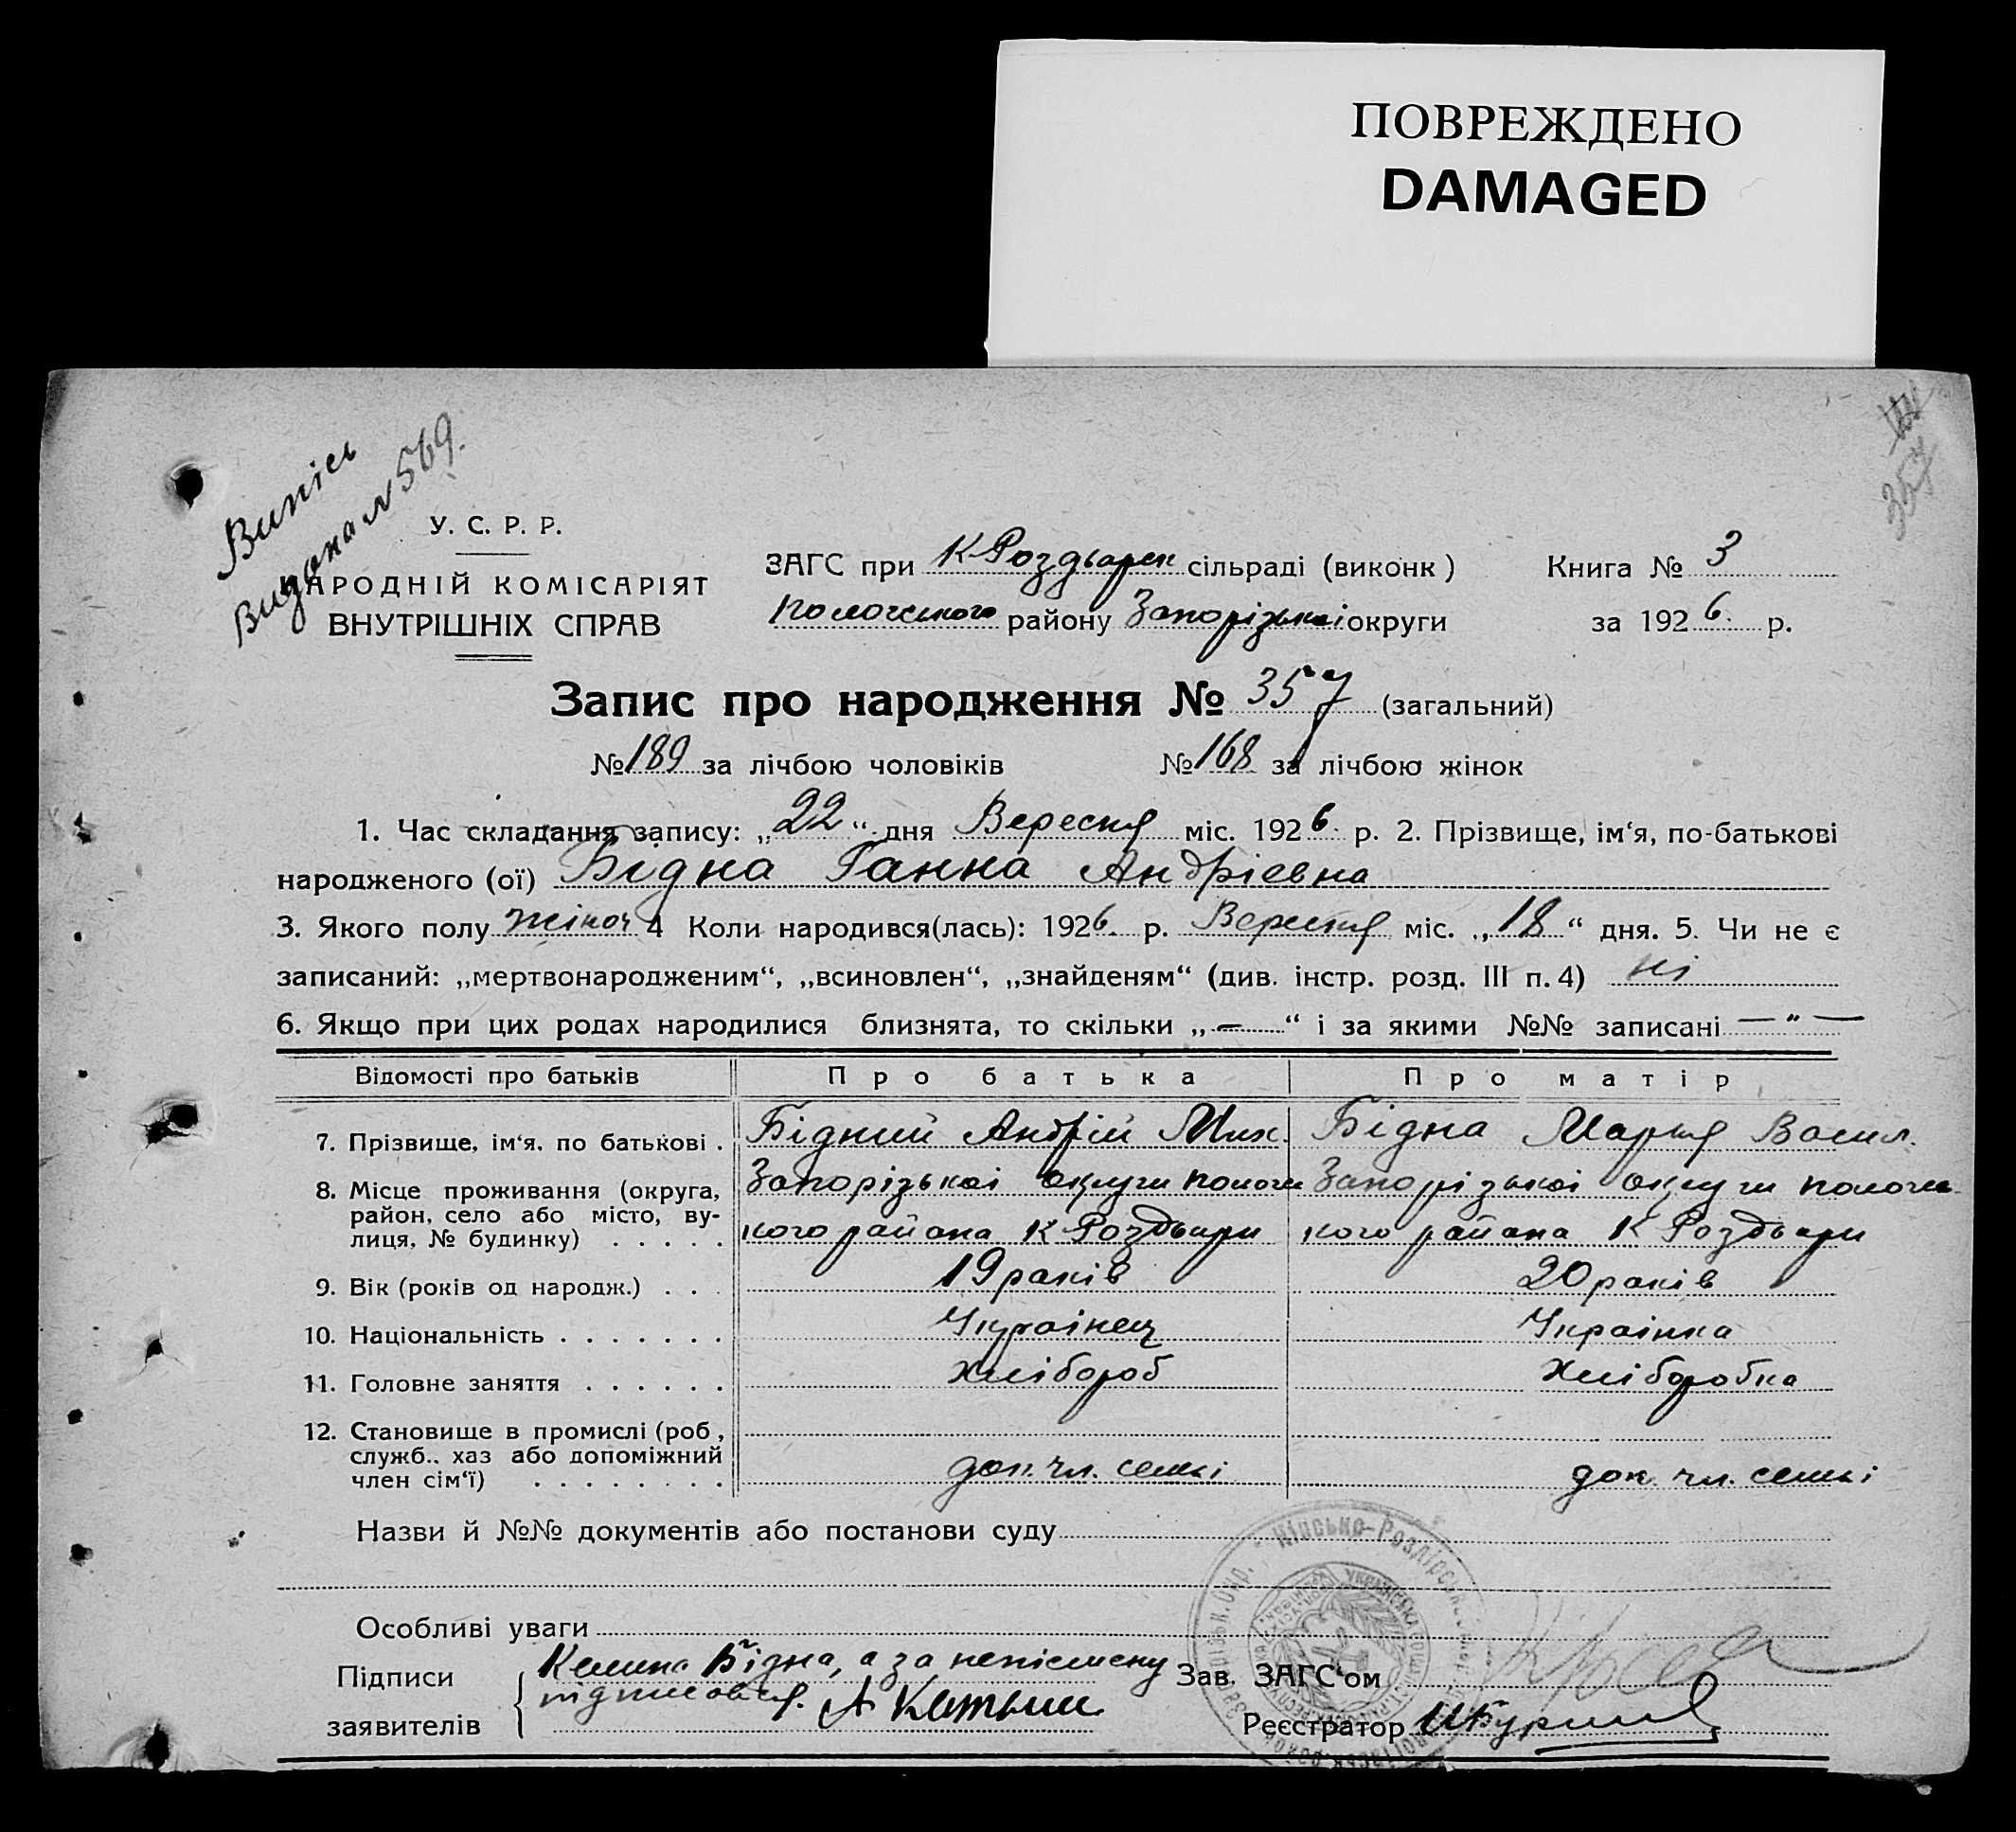 ПОВРЕЖДЕНО
DAMAGED
Випись
Видана N 569.
357
У. С. Р. Р.
НАРОДНІЙ КОМІСАРІЯТ
ВНУТРІШНІХ СПРАВ
ЗАГС при К Роздьорск сільраді (виконк)
Пологського району Запорізькоі округи
Книга № 3
за 1926. р.
Запис про народження № 357 (загальний)
№ 189 за лічбою чоловіків № 168 за лічбою жінок
1. Час складання запису: „22“ дня Вересня міс. 1926 р. 2. Прізвище, ім‘я, по-батькові
народженого (ої) Бідна Ганна Андріевна
3. Якого полу жіноч 4 Коли народився(лась): 1926. р. Вересня міс. „18“ дня. 5. Чи не є
записаний: „мертвонародженим“, „всиновлен“, „знайденям“ (див. інстр. розд. III п. 4) ні
6. Якщо при цих родах народилися близнята, то скільки „—“ і за якими №№ записані — „ —
Відомості про батьків Про батька Про матір
7. Прізвище, ім‘я, по батькові . Бідний Андрій Мих. Бідна Марья Васил.
8. Місце проживання (округа, Запорізькоі округи пологс Запорізькоі округи пологс-
район, село або місто, ву- кого района К Роздьори кого района К Роздьори
лиця, № будинку) . . . . .
9. Вік (років од народж.) . . . 19 раків 20 раків
10. Національність . . . . . . . Украінец Украінка
11. Головне заняття . . . . . . Хлібороб Хліборобка
12. Становище в промислі (роб ,
служб.. хаз або допоміжний доп. чл. семьі доп. чл. семьі
член сім‘ї) . . . . . . . .
Назви й №№ документів або постанови суду
Особливі уваги
Підписи Бідна, а за непісмену Зав. ЗАГС‘ом
підписався. А
заявителів Реєстратор